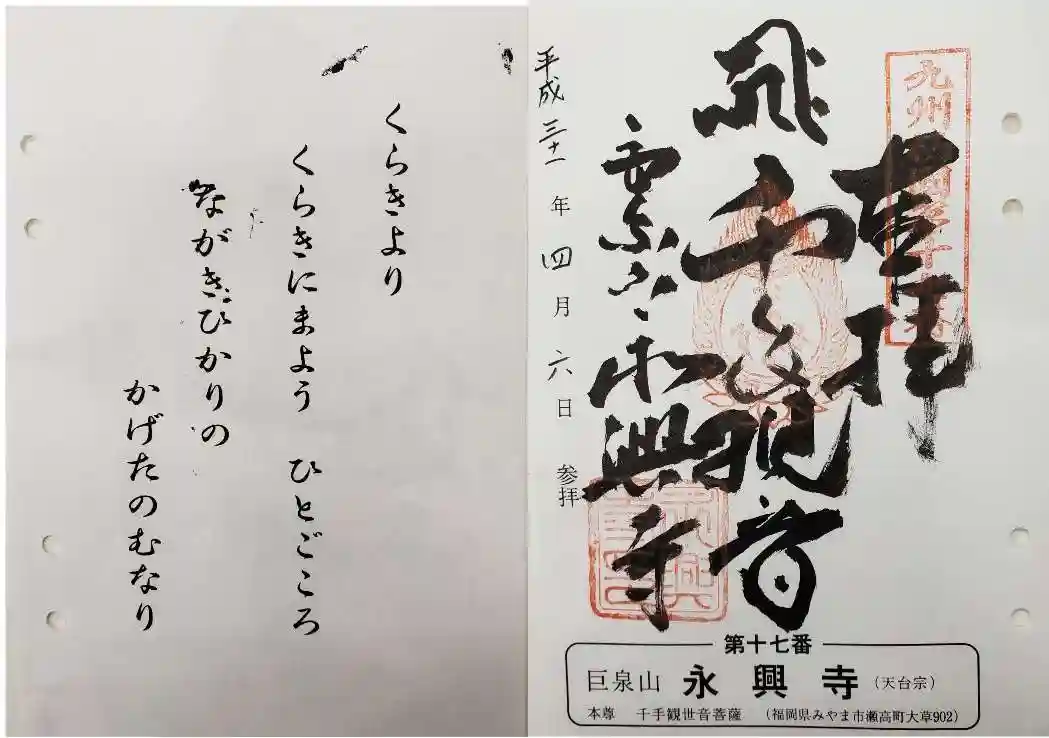 くらきより
くらきにまよう ひとごころ
ながきひかりの
かげたのむなり
九州
奉拝
千手観音
興寺
平成三十一年四月六日 参拝
第十七番
巨泉山 永興寺 (天台宗)
本尊 千手観世音菩薩 (福岡県みやま市瀬高町大草902)